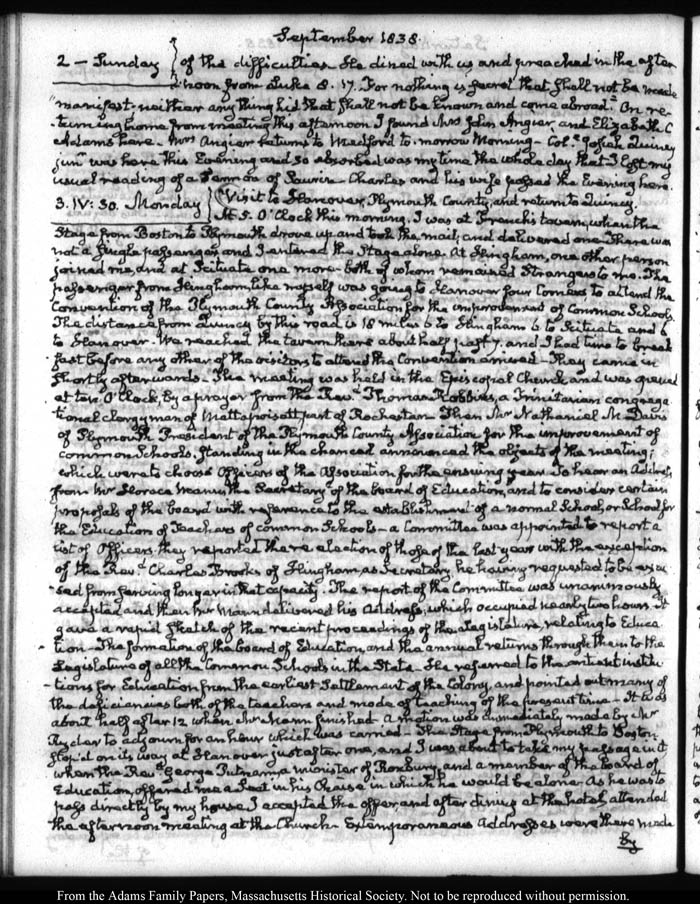 September 1838.
2 – Sunday } of the difficulties. He dined with us, and preached in the after
noon from Luke 8. 17. For nothing is secret that shall not be made
manifest: neither any thing hid that shall not be known and come abroad. On re-
turning home from meeting this afternoon I found Mrs John Angier, and Elizabeth C
Adams here. Mrs Angier returns to Medford to-morrow Morning – Col. Josiah Quincy
junr was here this Evening and so absorbed was my time the whole day that I lost my
usual reading of a Sermon of Saurin – Charles and his wife passed the Evening here.
3. IV: 30. Monday { Visit to Hanover, Plymouth County, and return to Quincy.
At 5. O'Clock this morning, I was at French's tavern, when the
Stage from Boston to Plymouth drove up and took the mail, and delivered one. There was
not a single passenger, and I entered the Stage alone. At Hingham, one other person
joined me, and at Scituate one more – both of whom remained Strangers to me. The
passenger from Hingham, like myself was going to Hanover four Corners to attend the
Convention of the Plymouth County Association for the improvement of Common Schools.
The distance from Quincy by this road is 18 miles 6 to Hingham 6 to Scituate and 6
to Hanover. We reached the tavern there about half past 7. and I had time to break
fast before any other of the visitors to attend the Convention arrived – They came in
shortly afterwards – The meeting was held in the Episcopal Church and was opened
at ten O'Clock, by a prayer from the Revd Thomas Robbins, a Trinitarian congrega-
tional clergyman of Mattapoisett part of Rochester. Then Mr Nathaniel M. Davis
of Plymouth President of the Plymouth County Association for the improvement of
common Schools, standing in the chancel announced the objects of the meeting;
which were to choose Officers of the Association for the ensuing year. To hear an Address
from Mr Horace Mann the Secretary of the board of Education, and to consider certain
proposals of the board with reference to the establishment of a normal School, or School for
the Education of Teachers of common Schools – a Committee was appointed to report a
list of Officers, they reported the re-election of those of the last year with the exception
of the Revd Charles Brooks of Hingham, as Secretary, he having requested to be excu-
sed from serving longer in that capacity. The report of the Committee was unanimously
accepted and then Mr Mann delivered his Address, which occupied nearly two hours. It
gave a rapid sketch of the recent proceedings of the Legislature, relating to Educa-
tion – The formation of the board of Education, and the annual returns through them to the
Legislature of all the Common Schools in the State. He referred to the antient institu-
tions for Education from the earliest Settlement of the Colony, and pointed out many of
the deficiencies both of the teachers and mode of teaching of the present time – It was
about half after 12 when Mr Mann finished. A motion was immediately made by Mr
Ryder to adjourn for an hour which was carried – The Stage from Plymouth to Boston
stop'd on its way at Hanover just after one, and I was about to take my passage in it
when the Revd George Putnam, a minister of Roxbury, and a member of the board of
Education, offered me a Seat in his Chaise in which he would be alone. As he was to
pass directly by my house I accepted the offer and after dining at the hotel, attended
the afternoon meeting at the Church – Extemporaneous Addresses were there made
by
From the Adams Family Papers, Massachusetts Historical Society. Not to be reproduced without permission.